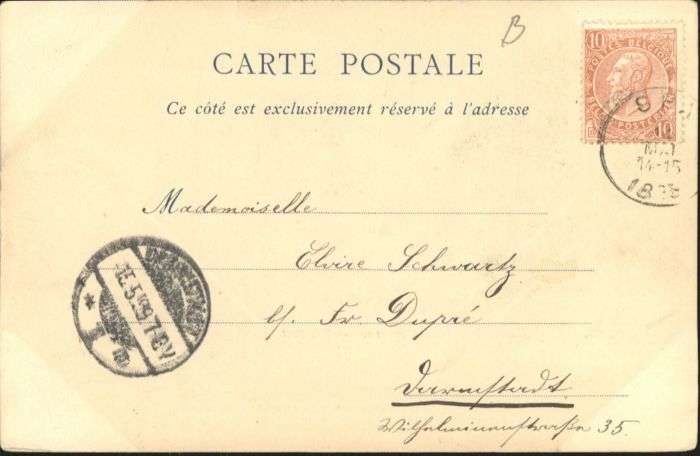 B
CARTE POSTALE
Ce côté est exclusivement réservé à l'adresse
10 POSTES BELGIQUE
10
MAI
14-15
Mademoiselle
Elvire Schwartz
b/. Fr. Dupré
Darmstadt.
Wilhelminenstraße 35.
DARMSTADT
15.5.99.7-8V.
* 1 m